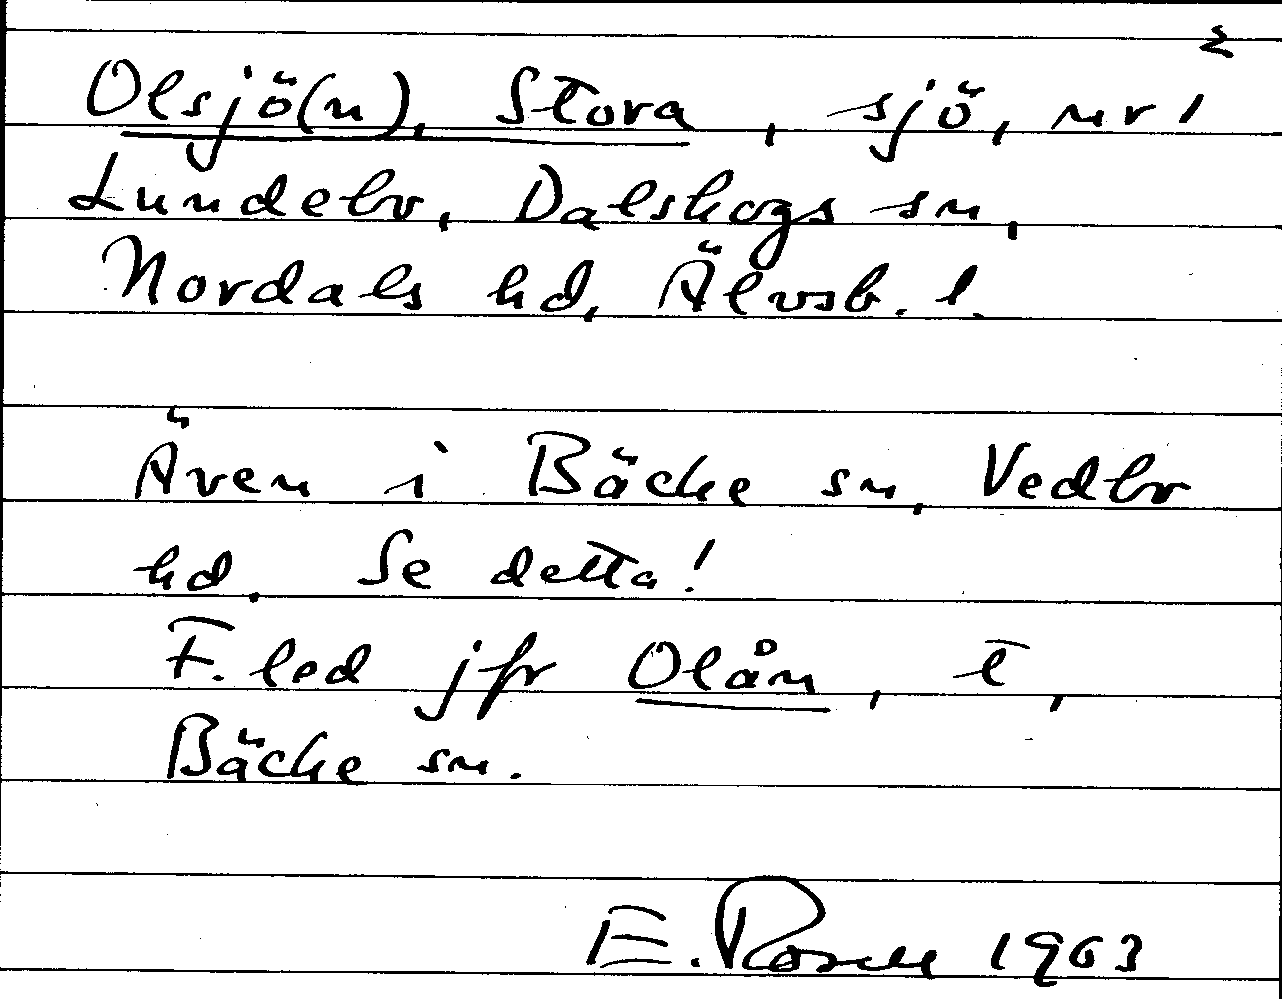 2
Olsjö(n), Stora, sjö, nr 1
Lundebr, Dalskogs sn,
Nordals hd, Älvsb. l.
Även i Bäcke sn, Vedbr
hd. Se detta!
F. led jfr Olån, t,
Bäcke sn.
E. Rosell 1963